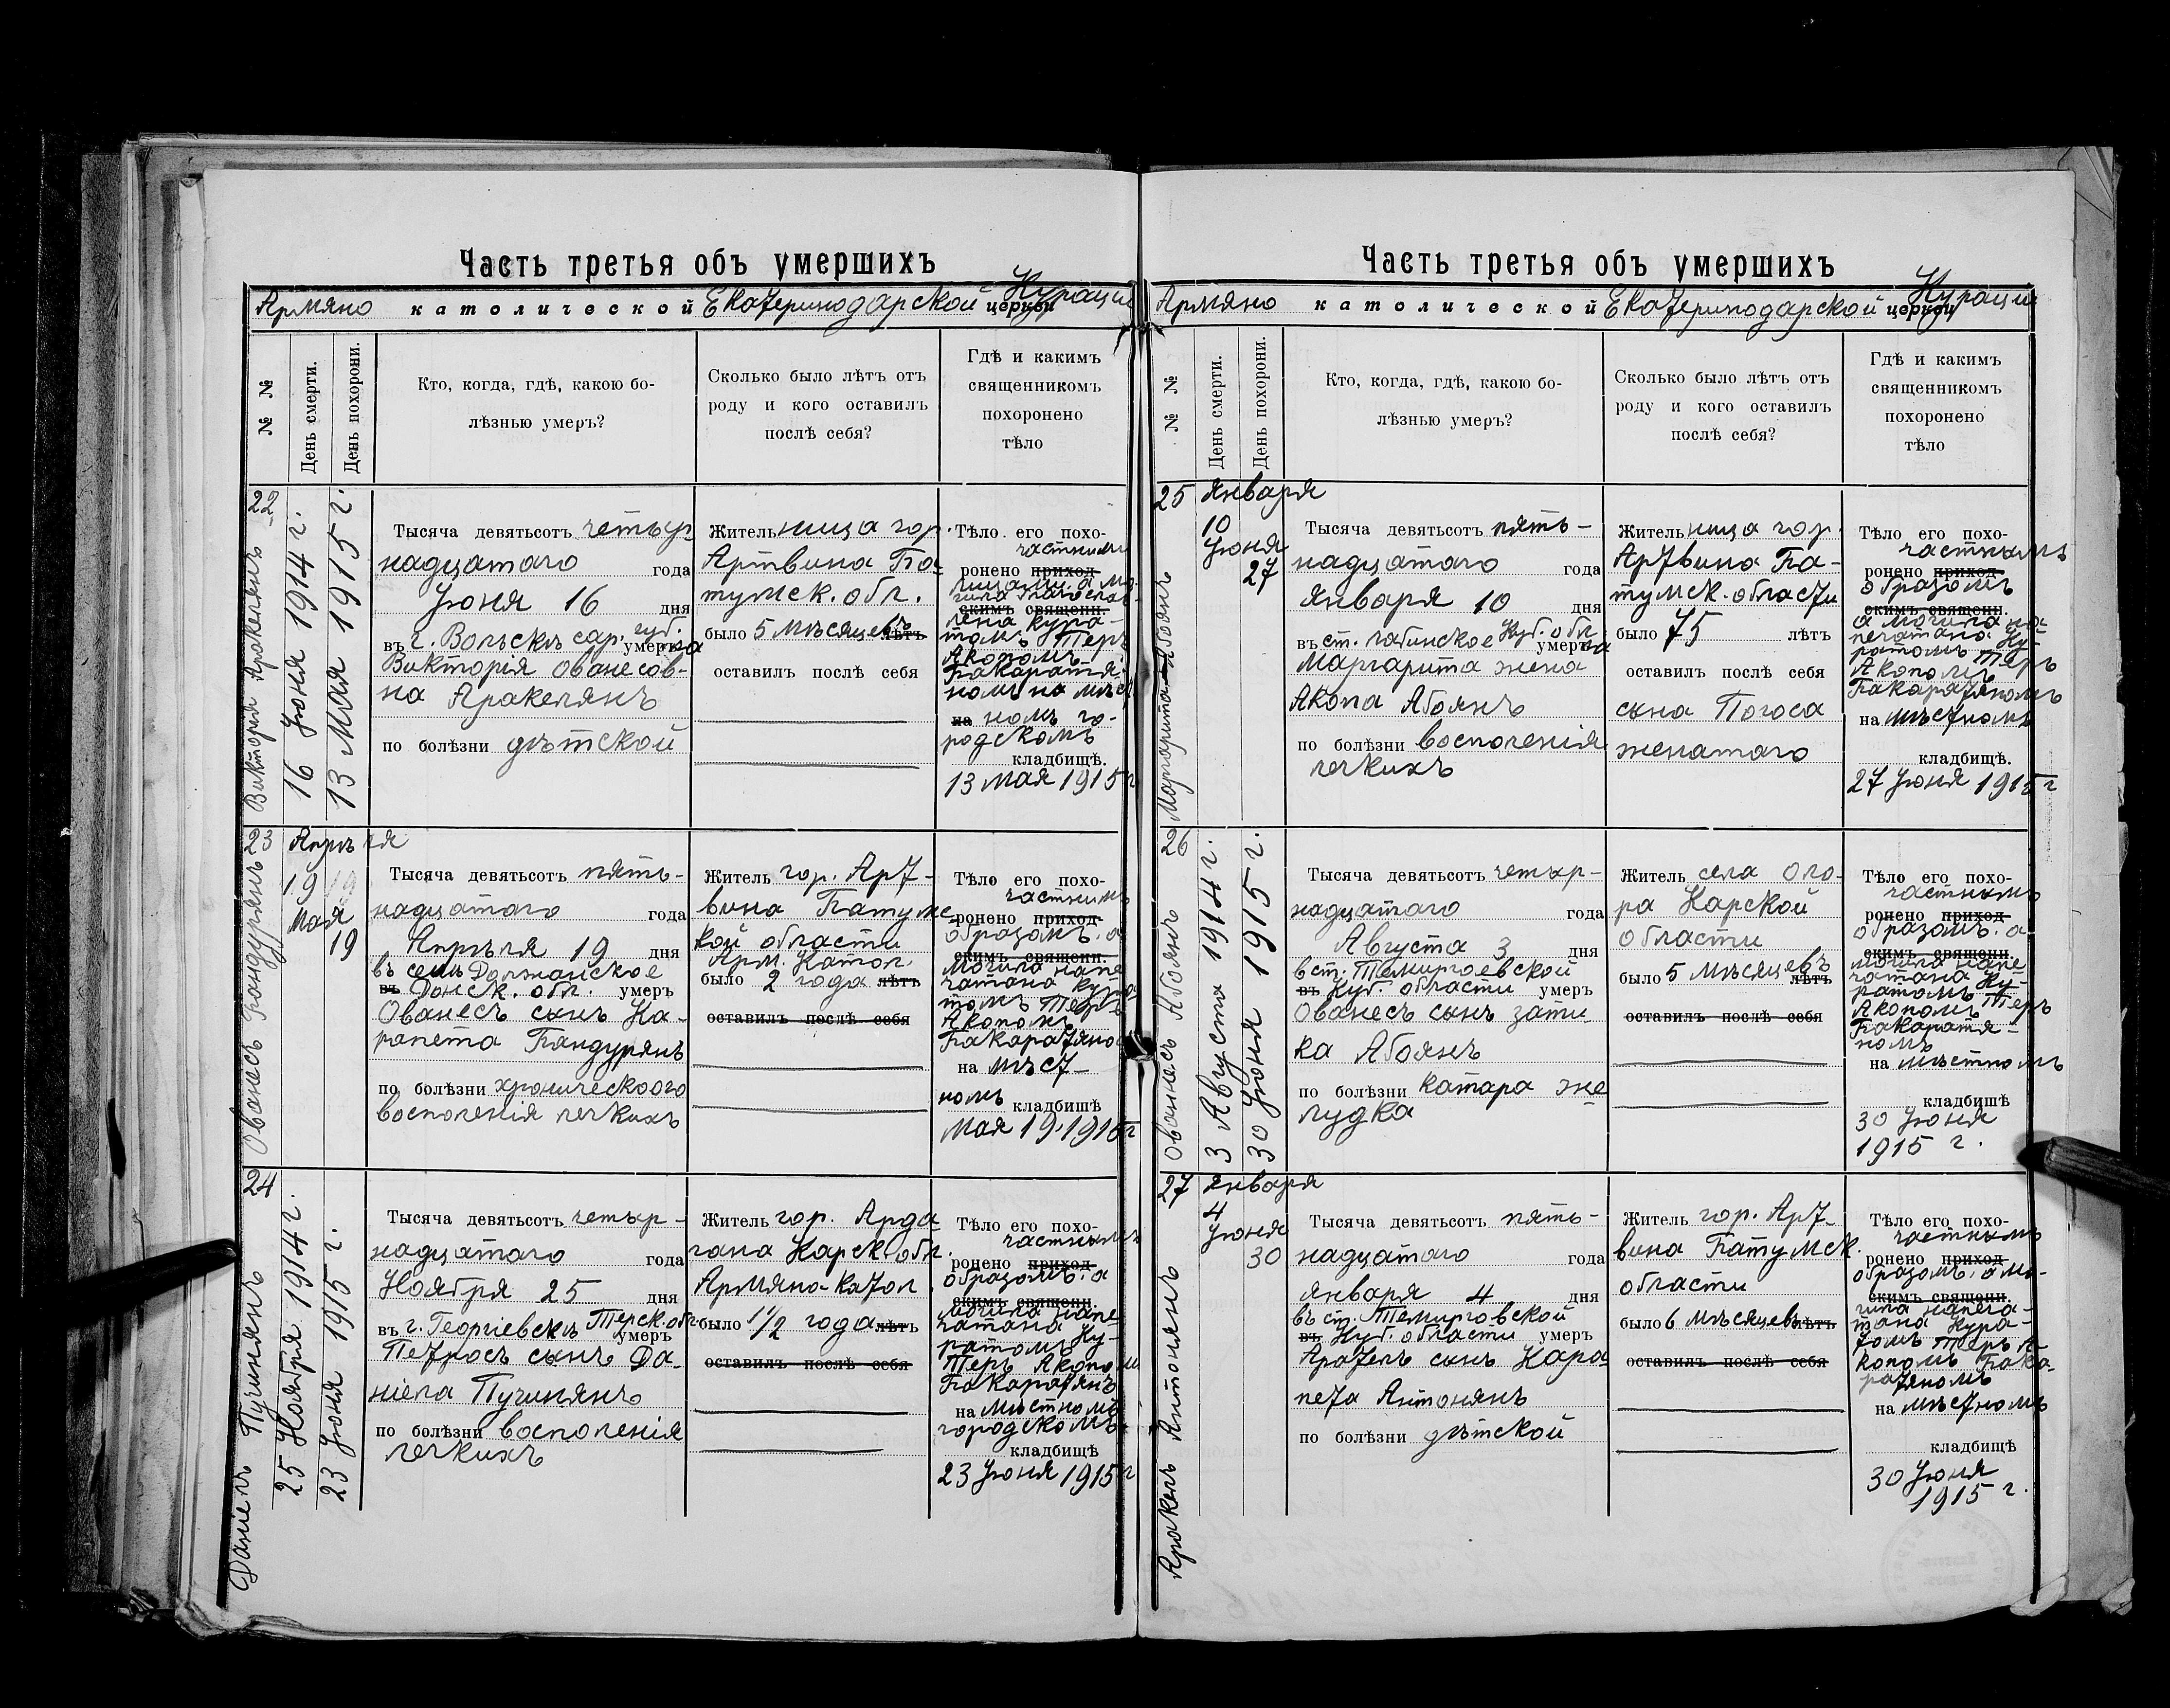 Часть третья объ умершихъ
Армяно католической Екатеринодарской церкви Курации
№ №
День смерти.
День похорони.
Кто, когда, гдѣ, какою бо-
лѣзнью умеръ?
Сколько было лѣтъ отъ
роду и кого оставилъ
послѣ себя?
Гдѣ и какимъ
священникомъ
похоронено
тѣло
22
Виктория Аракелянъ
16 Июня 1914 г.
13 Мая 1915 г.
Тысяча девятьсотъ четыр
надцатого года
Июня 16 дня
въ г. Вольскъ сар. губ. умерла
Викторія Ованесов-
на Аракелянъ
по болѣзни дѣтской
Жительница гор.
Артвина Ба-
тумск. обл.
было 5 мѣсяцевъ лѣтъ
оставилъ послѣ себя
Тѣло его похо-
частными
ронено приход-
лицами, а мо-
скимъ священн.
томъ Теръ
Акопомъ
номъ на мѣст
на номъ го-
родскомъ
кладбищѣ.
13 мая 1915 г
23
Ованесъ Бандурянъ
Апрѣля
19 19
Мая
19
Тысяча девятьсотъ пять-
надцатого года
Апрѣля 19 дня
въ селѣ Должанское
въ Донск. обл. умеръ
Ованесъ сынъ Ка-
рапета Бандурянъ
по болѣзни хроническоого
восполенія легкихъ
Житель гор. Арт-
вина Батумс
кой области
Арм. Катол.
было 2 года лѣтъ
оставилъ послѣ себя
Тѣло его похо-
частнымъ
ронено приход-
образомъ. а
скимъ священн.
могила напе
чатана кура
томъ Теръ
Акопомъ
Бакаратяно
на мѣст-
номъ кладбищѣ
Мая 19. 1915 г
24
Даніелъ Пучинянъ
25 Ноября 1914 г.
23 Июня 1915 г.
Тысяча девятьсотъ четыр-
надцатого года
Ноября 25 дня
въ г. Георгіевскъ Терск. обл. умеръ
Петросъ сынъ Да-
ніела Пучинянъ
по болѣзни восполенія
легкихъ
Житель гор. Арда
гана Карск. обл.
Армяно-катол
было 1½ года лѣтъ
оставилъ послѣ себя
Тѣло его похо-
частнымъ
ронено приход-
образомъ. а
скимъ священн.
могила напе
чатана Ку-
ратомъ
Теръ Акопом
Бакаратянъ
на мѣстномъ
городскомъ
кладбищѣ
23 Июня 1915 г
Часть третья объ умершихъ
Армяно католической Екатеринодарской церкви Курации
№ №
День смерти.
День похорони.
Кто, когда, гдѣ, какою бо-
лѣзнью умеръ?
Сколько было лѣтъ отъ
роду и кого оставилъ
послѣ себя?
Гдѣ и какимъ
священникомъ
похоронено
тѣло
25
Маргарита Абоянъ
Января
10
Июня
27
Тысяча девятьсотъ пять-
надцатого года
Января 10 дня
въ ст. лабинское Куб. обл. умерла
Маргарита жена
Акопа Абоянъ
по болѣзни восполенія
легкихъ
Жительница гор.
Артвина Ба-
тумск. области
было 75 лѣтъ
оставилъ послѣ себя
сына Погоса
женатого
Тѣло его похо-
частнымъ
ронено приход-
образомъ
скимъ священн.
а могила на
печатана Ку-
ратомъ Теръ
Акопомъ
Бакаратяномъ
на мѣстномъ
кладбищѣ.
27 Июня 1915 г
26
Ованесъ Абоянъ
3 Августа 1914 г.
30 Июня 1915 г.
Тысяча девятьсотъ четыр-
надцатого года
Августа 3 дня
въ ст. Темиргоевской
въ Куб. области умеръ
Ованесъ сынъ Зати
ка Абоянъ
по болѣзни катара же
лудка
Житель села Ого-
ра Карской
области
было 5 мѣсяцевъ лѣтъ
оставилъ послѣ себя
Тѣло его похо-
частнымъ
ронено приход-
образомъ. а
скимъ священн.
могила напе
чатана Ку-
ратомъ Теръ
Акопомъ
Бакаратя-
номъ
на мѣстномъ
кладбищѣ
30 Июня
1915 г.
27
Аракелъ Антонянъ
Января
4
Июня
30
Тысяча девятьсотъ пять-
надцатого года
Января 4 дня
въ ст. Темирговской
въ Куб. области умеръ
Аракелъ сынъ Кара
пета Антонянъ
по болѣзни дѣтской
Житель гор. Арт-
вина Батумск.
области
было 6 мѣсяцевъ лѣтъ
оставилъ послѣ себя
Тѣло его похо-
частнымъ
ронено приход-
образомъ. а мо-
скимъ священн.
гила напеча-
тана Кура-
томъ Теръ А-
копомъ Бака-
ратяномъ
на мѣстномъ
кладбищѣ
30 Июня
1915 г.